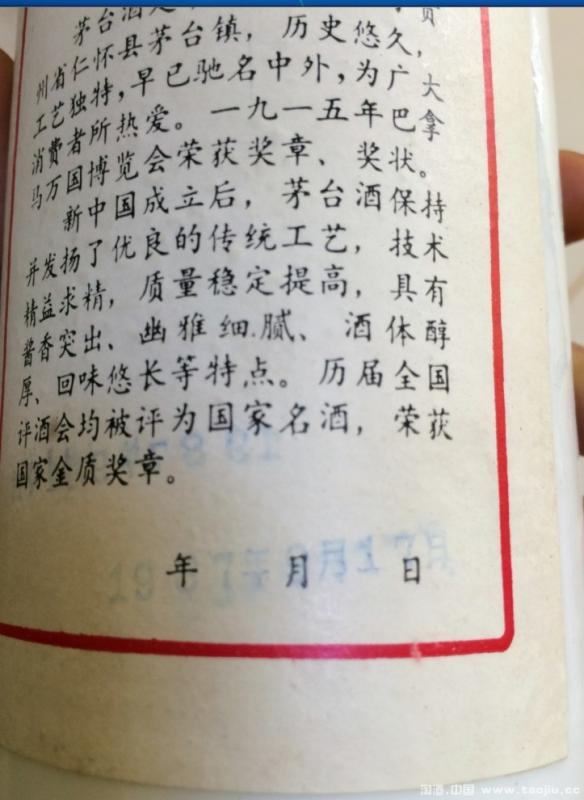 茅台酒是
州省仁怀县茅台镇，历史悠久，
工艺独特，早已驰名中外，为广大
消费者所热爱。一九一五年巴拿
马万国博览会荣获奖章、奖状。
新中国成立后，茅台酒保持
并发扬了优良的传统工艺，技术
精益求精，质量稳定提高，具有
酱香突出、幽雅细腻、酒体醇
厚、回味悠长等特点。历届全国
评酒会均被评为国家名酒，荣获
国家金质奖章。
年 月 日
淘酒.中国 www.taojiu.cc